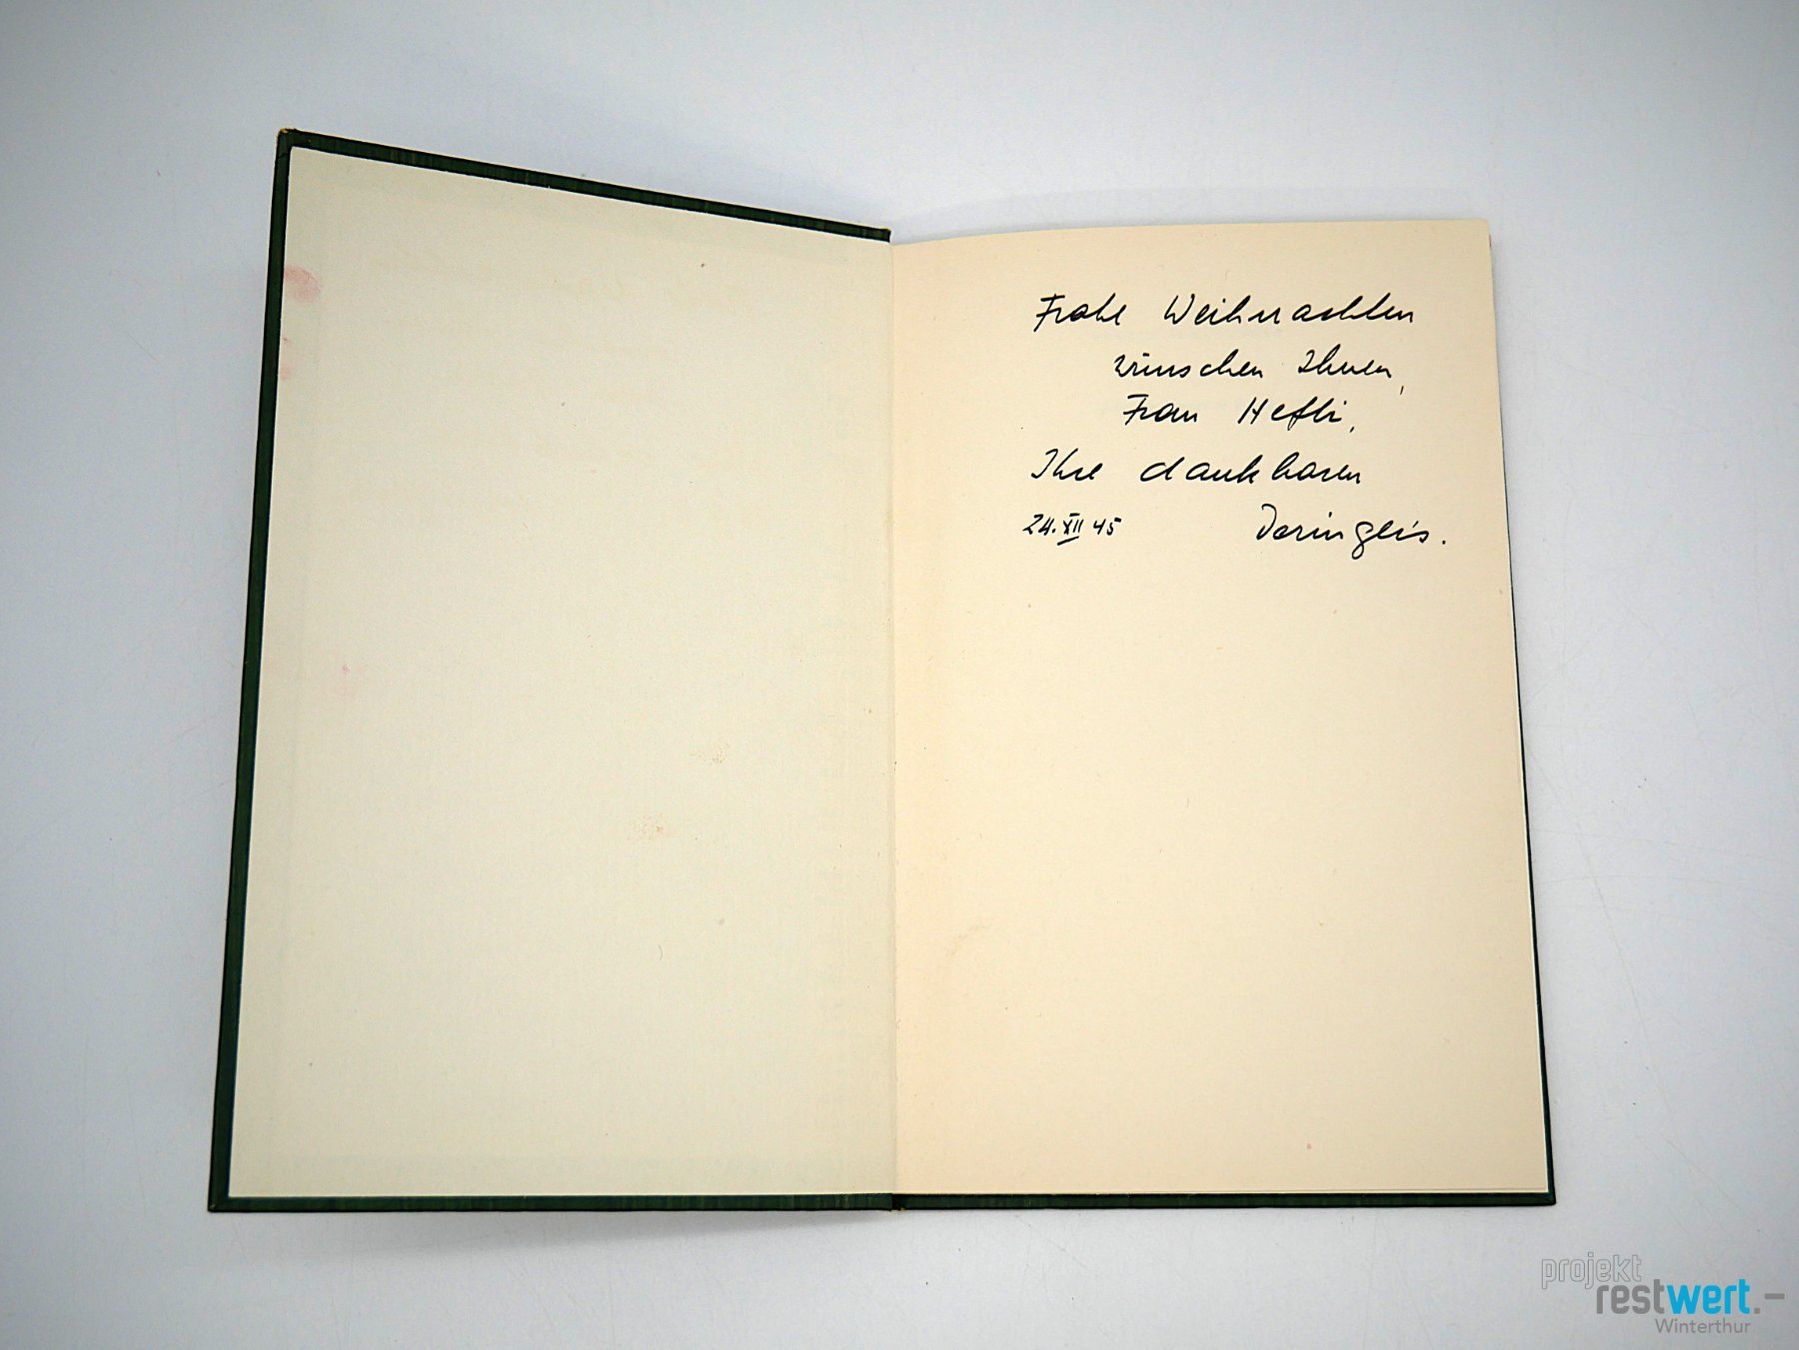 Frohe Weihnachten
wünschen Ihnen,
Frau Hefti,
Ihre dankbaren
24. XII 45 Däringers.
projekt
restwert.–
Winterthur